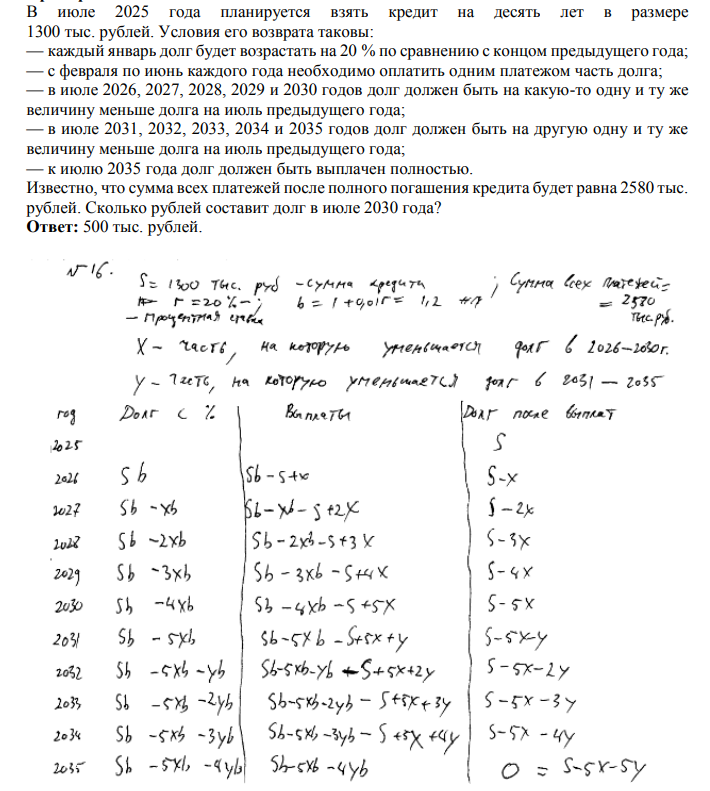 В июле 2025 года планируется взять кредит на десять лет в размере
1300 тыс. рублей. Условия его возврата таковы:
— каждый январь долг будет возрастать на 20 % по сравнению с концом предыдущего года;
— с февраля по июнь каждого года необходимо оплатить одним платежом часть долга;
— в июле 2026, 2027, 2028, 2029 и 2030 годов долг должен быть на какую-то одну и ту же
величину меньше долга на июль предыдущего года;
— в июле 2031, 2032, 2033, 2034 и 2035 годов долг должен быть на другую одну и ту же
величину меньше долга на июль предыдущего года;
— к июлю 2035 года долг должен быть выплачен полностью.
Известно, что сумма всех платежей после полного погашения кредита будет равна 2580 тыс.
рублей. Сколько рублей составит долг в июле 2030 года?
Ответ: 500 тыс. рублей.
№16.
S = 1300 тыс. руб - сумма кредита ; Сумма всех платежей =
r = 20% - ; b = 1 + 0,01r = 1,2 = 2580
- процентная ставка тыс руб.
X - часть, на которую уменьшается долг в 2026-2030г.
y - часть, на которую уменьшается долг в 2031 - 2035
год Долг с % Выплаты Долг после выплат
2025 S
2026 Sb Sb-S+x S-x
2027 Sb -xb Sb-xb-S+2x S-2x
2028 Sb -2xb Sb-2xb-S+3x S-3x
2029 Sb -3xb Sb-3xb-S+4x S-4x
2030 Sb -4xb Sb-4xb-S+5x S-5x
2031 Sb -5xb Sb-5xb-S+5x+y S-5x-y
2032 Sb -5xb -yb Sb-5xb-yb-S+5x+2y S-5x-2y
2033 Sb -5xb -2yb Sb-5xb-2yb-S+5x+3y S-5x-3y
2034 Sb -5xb -3yb Sb-5xb-3yb-S+5x+4y S-5x-4y
2035 Sb -5xb -4yb Sb-5xb-4yb 0 = S-5x-5y